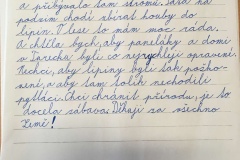 a přibývalo tam stromů. Jára na
podzim chodí sbírat houby do
lipin. V lese to mám moc ráda.
A chtěla bych, aby paneláky a domi
v Jarechu byli co nejrychleji opraveni.
Nechci, aby lipiny byli tak poško-
zení, a aby tam tolik nechodili
pytláci. Chci chránit přírodu, je to
docela zábava. Děkuji za všechno
Země!